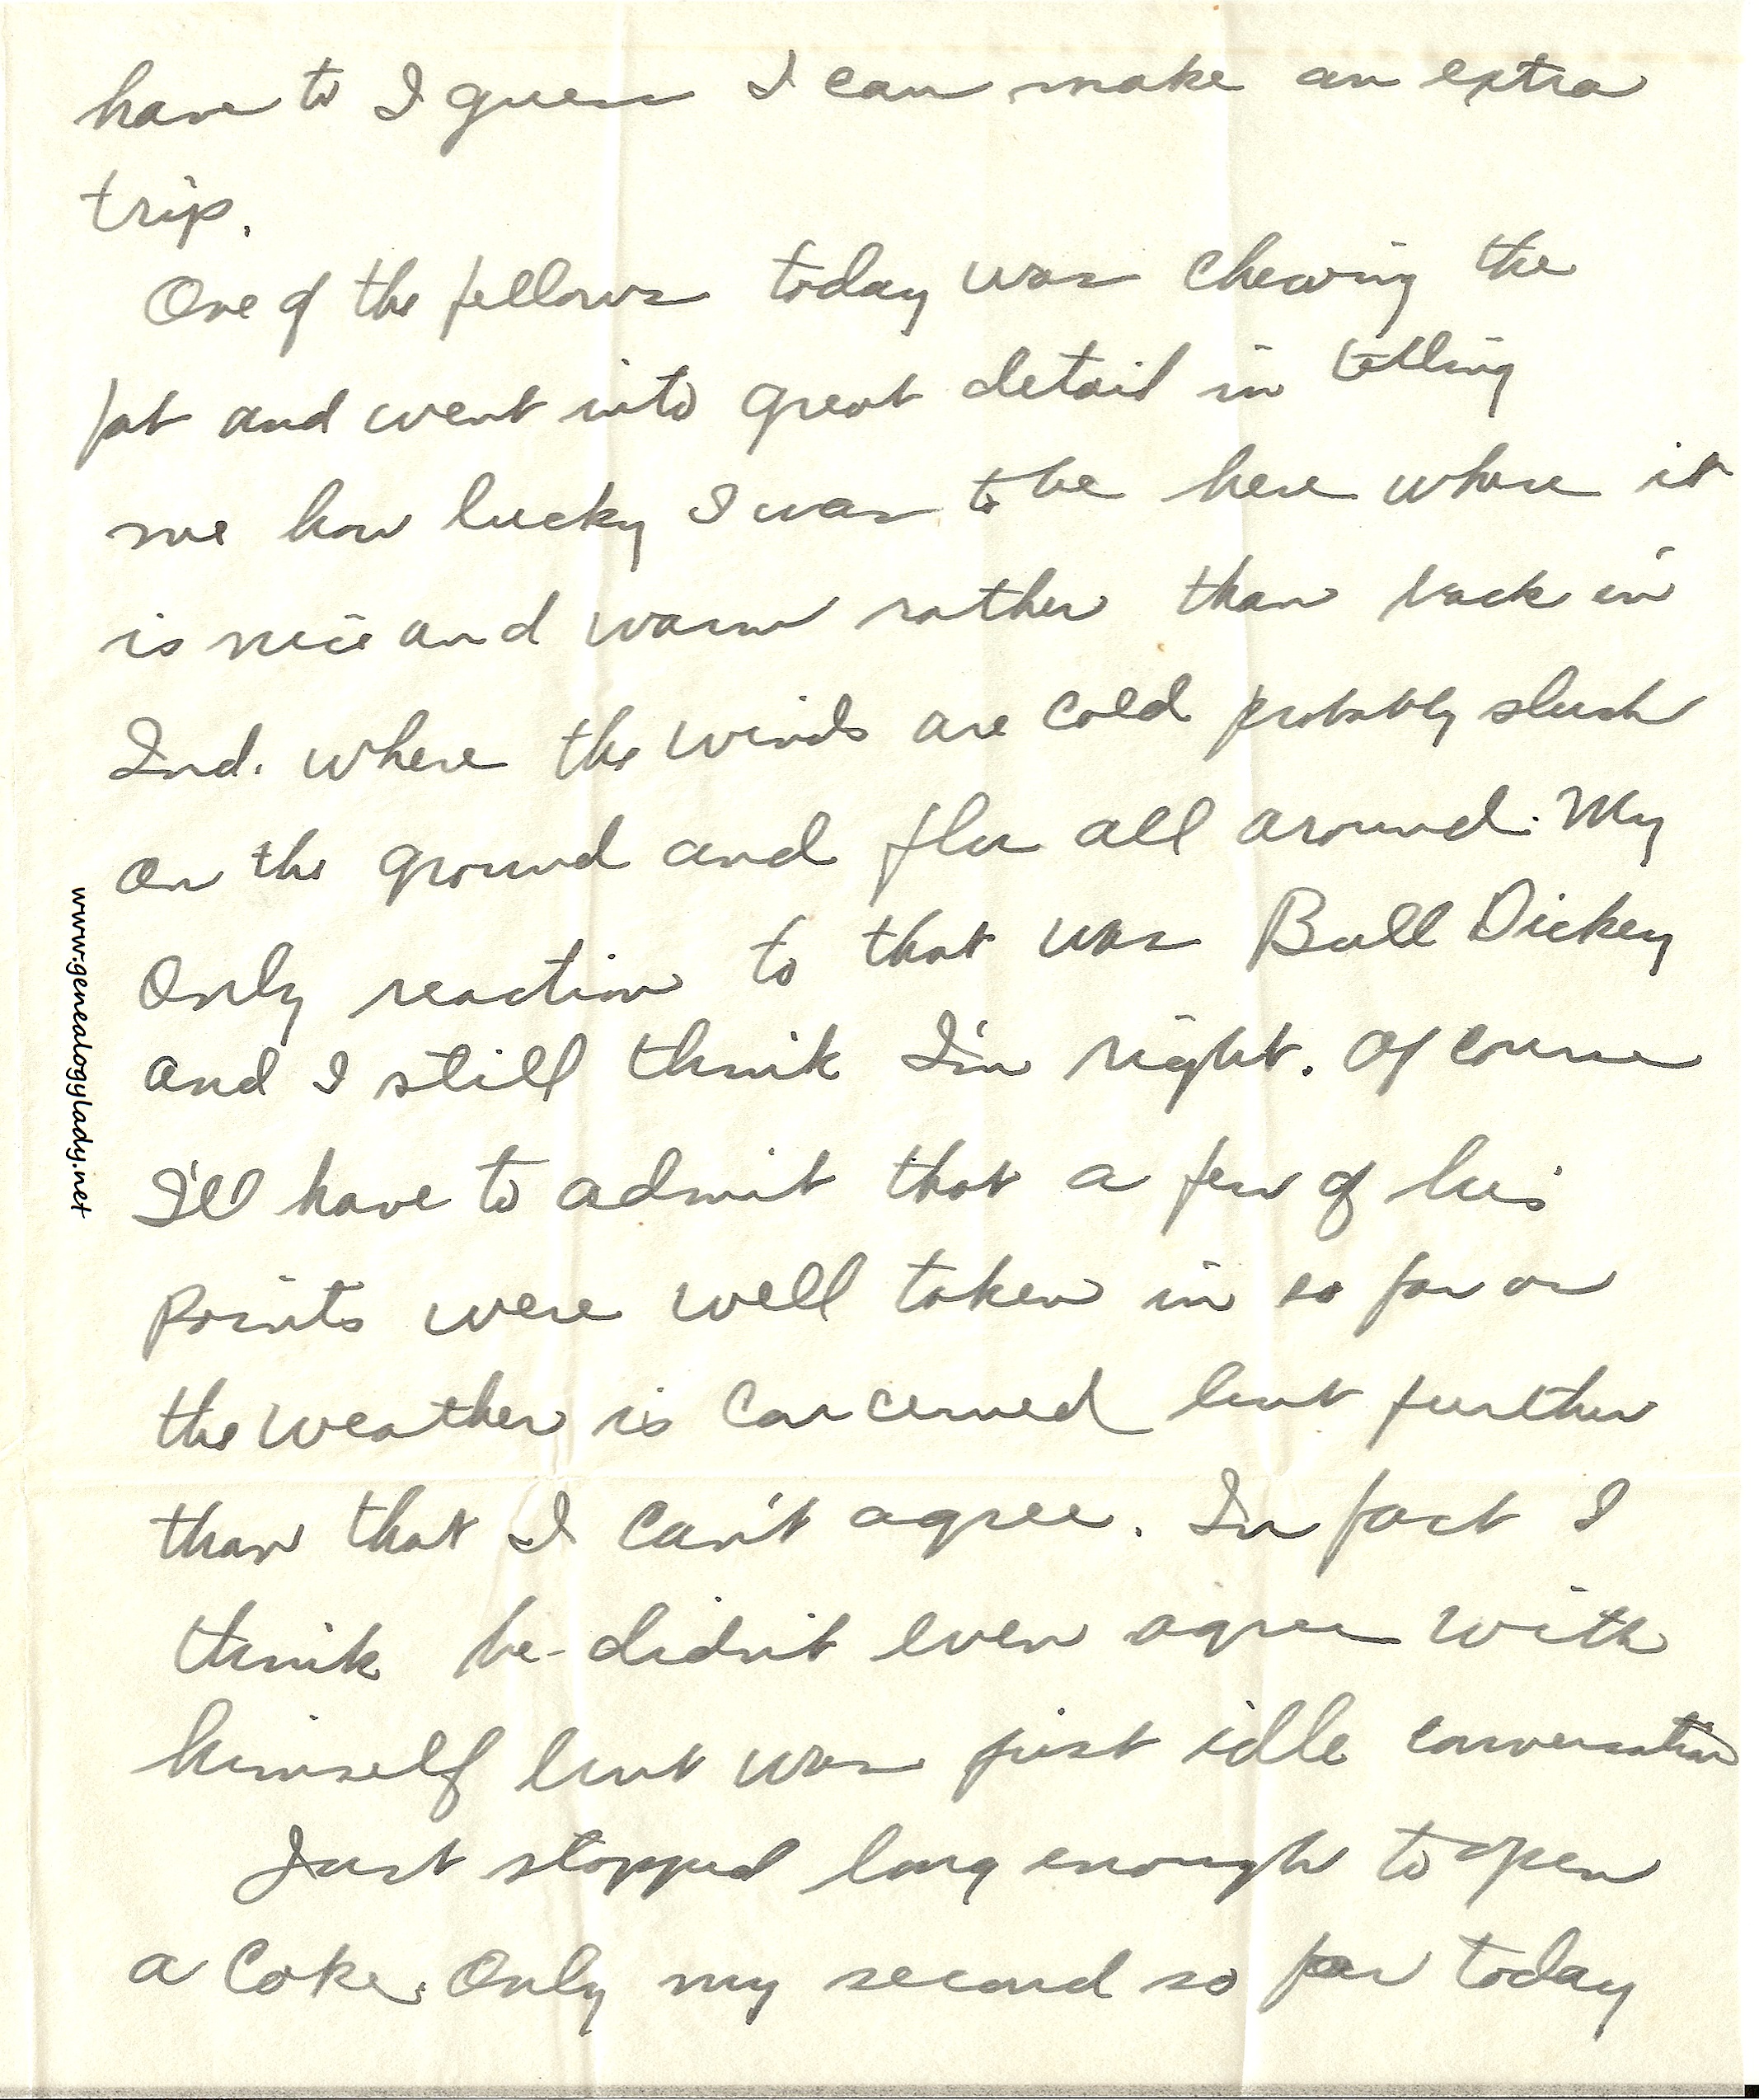 have to I guess I can make an extra
trip.
One of the fellows today was chewing the
fat and went into great detail in telling
me how lucky I was to be here where it
is nice and warm rather than back in
Ind. where the winds are cold probably slush
on the ground and flu all around. My
only reaction to that was Bull Dickey
and I still think I'm right. Of course
I'll have to admit that a few of his
points were well taken in so far as
the weather is concerned but further
than that I can't agree. In fact I
think he didn't even agree with
himself but was just idle conversation
Just stopped long enough to open
a Coke. Only my second so far today
www.genealogylady.net